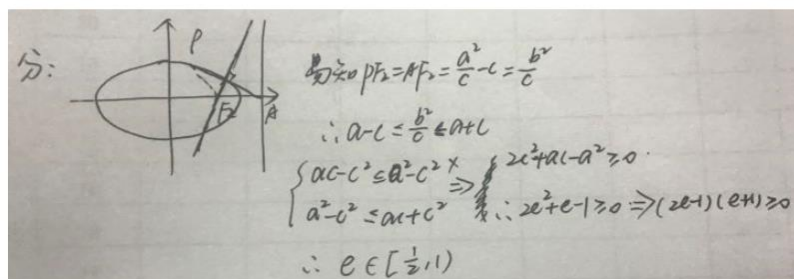 分:
P
F₂
A
易知 PF₂=AF₂=a²/c-c=b²/c
∴ a-c≤b²/c≤a+c
{ac-c²≤a²-c² × ⇒ 2c²+ac-a²≥0.
a²-c²≤ac+c² ∴ 2e²+e-1≥0⇒(2e-1)(e+1)≥0
∴ e∈[1/2,1)